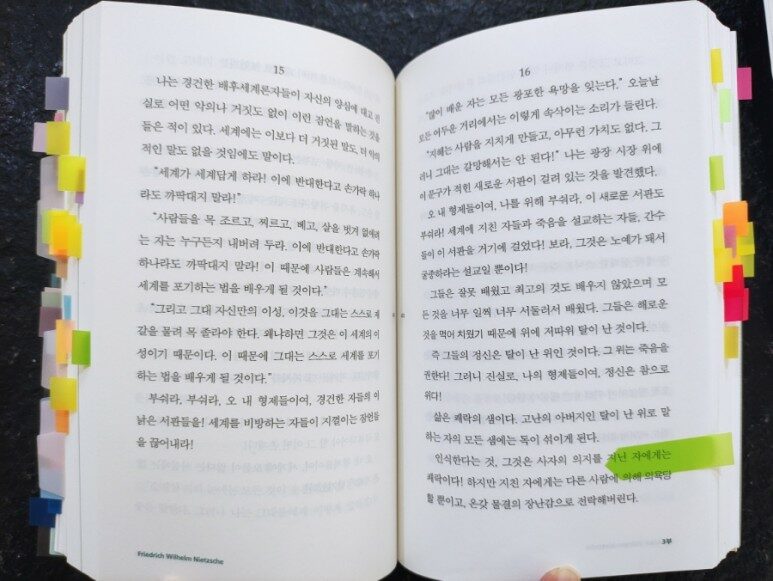 15
나는 경건한 배후세계론자들이 자신의 양심에 대고 진
실로 어떤 악의나 거짓도 없이 이런 잠언을 말하는 것을
들은 적이 있다. 세계에는 이보다 더 거짓된 말도, 더 악의
적인 말도 없을 것임에도 말이다.
"세계가 세계답게 하라! 이에 반대한다고 손가락 하나
라도 까딱대지 말라!"
"사람들을 목 조르고, 찌르고, 베고, 살을 벗겨 없애려
는 자는 누구든지 내버려 두라. 이에 반대한다고 손가락
하나라도 까딱대지 말라! 이 때문에 사람들은 계속해서
세계를 포기하는 법을 배우게 될 것이다."
"그리고 그대 자신만의 이성, 이것을 그대는 스스로 재
갈을 물려 목 졸라야 한다. 왜냐하면 그것은 이 세계의 이
성이기 때문이다. 이 때문에 그대는 스스로 세계를 포기
하는 법을 배우게 될 것이다."
부숴라, 부숴라, 오 내 형제들이여, 경건한 자들의 이
낡은 서판들을! 세계를 비방하는 자들이 지껄이는 잠언들
을 끊어내라!
Friedrich Wilhelm Nietzsche
16
"많이 배운 자는 모든 광포한 욕망을 잊는다." 오늘날
모든 어두운 거리에서는 이렇게 속삭이는 소리가 들린다.
"지혜는 사람을 지치게 만들고, 아무런 가치도 없다. 그
러니 그대는 갈망해서는 안 된다!" 나는 광장 시장 위에
이 문구가 적힌 새로운 서판이 걸려 있는 것을 발견했다.
오 내 형제들이여, 나를 위해 부숴라, 이 새로운 서판도
부숴라! 세계에 지친 자들과 죽음을 설교하는 자들, 간수
들이 이 서판을 거기에 걸었다! 보라, 그것은 노예가 돼서
굴종하라는 설교일 뿐이다!
그들은 잘못 배웠고 최고의 것도 배우지 않았으며 모
든 것을 너무 일찍 너무 서둘러서 배웠다. 그들은 해로운
것을 먹어 치웠기 때문에 위에 저따위 탈이 난 것이다.
즉 그들의 정신은 탈이 난 위인 것이다. 그 위는 죽음을
권한다! 그러니 진실로, 나의 형제들이여, 정신은 참으로
위다!
삶은 쾌락의 샘이다. 고난의 아버지인 탈이 난 위로 말
하는 자의 모든 샘에는 독이 섞이게 된다.
인식한다는 것, 그것은 사자의 의지를 지닌 자에게는
쾌락이다! 하지만 지친 자에게는 다른 사람에 의해 의욕당
할 뿐이고, 온갖 물결의 장난감으로 전락해버린다.
3부